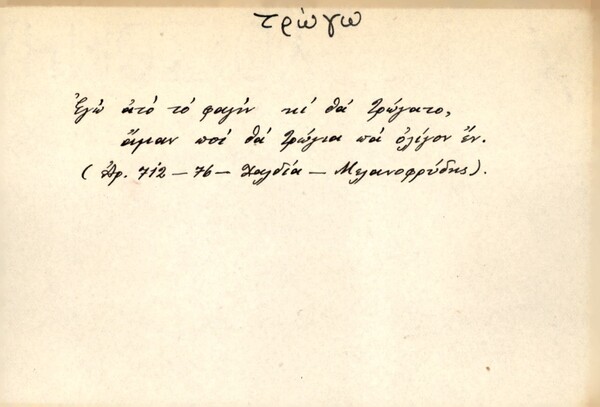 τρώγω
Ἐγὼ ἀτὸ τὸ φαγὶν κὶ θὰ τρώγατο,
ἄμαν ποὶ θὰ τρώγνα πὰ ὀλίγον ἔν.
(Ἀρ. 712 – 76 – Χαλδία – Μελανοφρύδης).